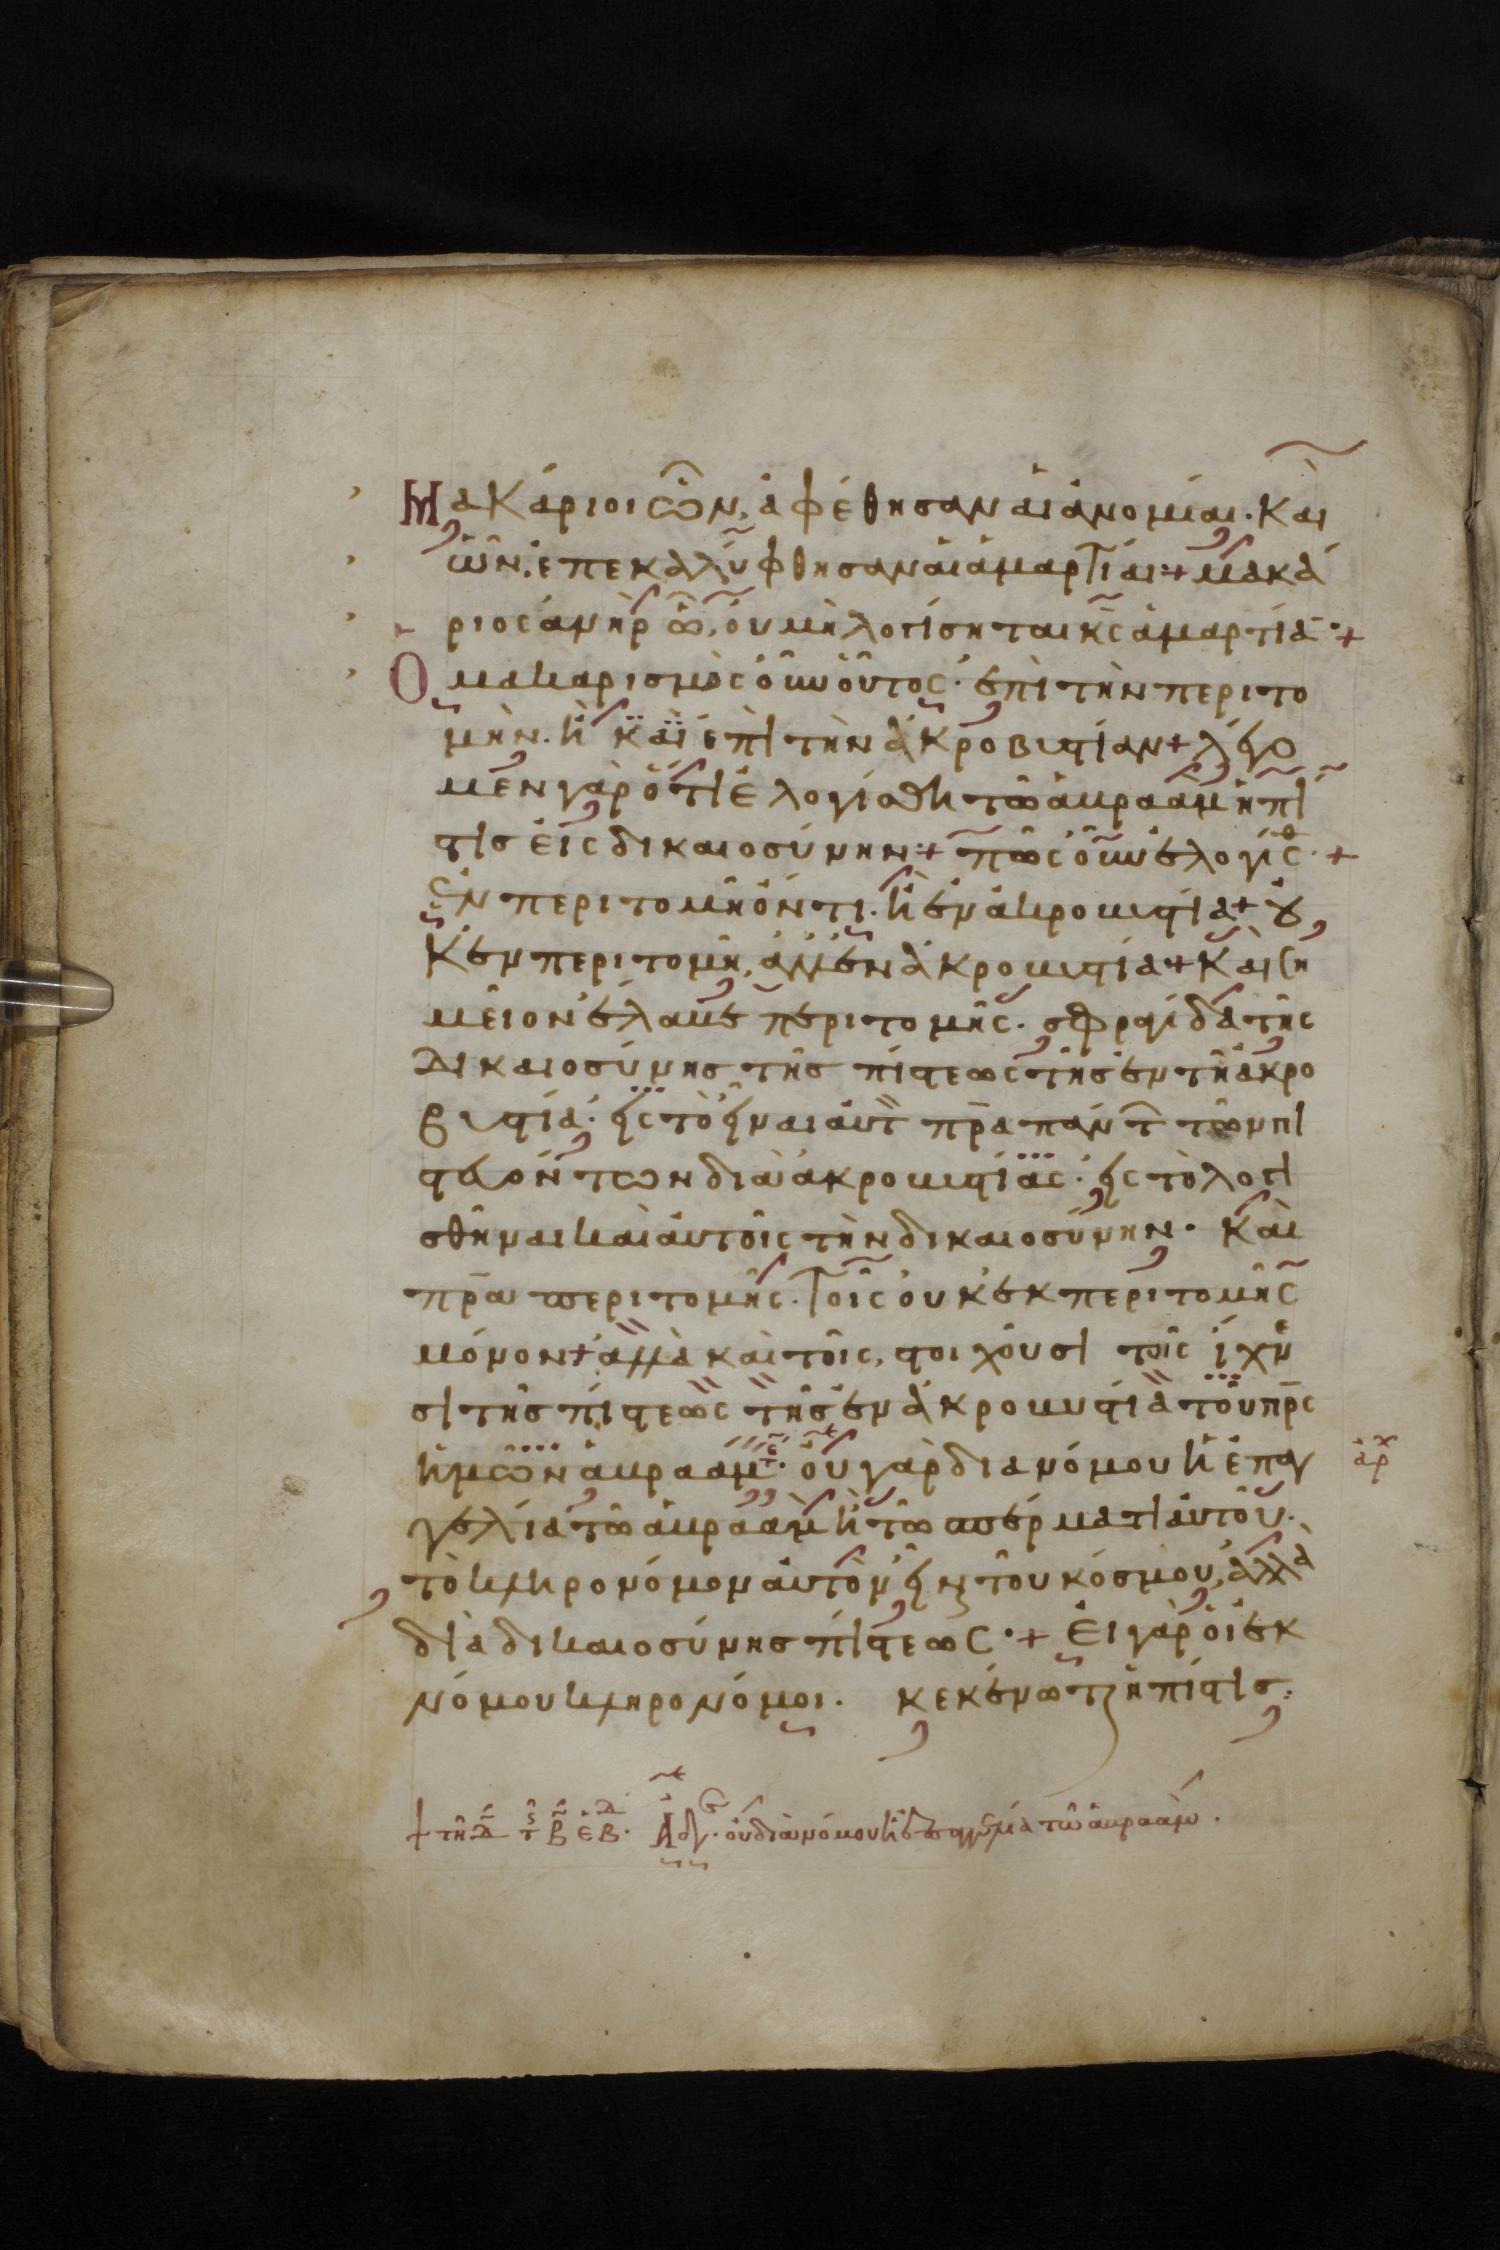 Μακάριοι ὧν, ἀφέθησαν αἱ ἀνομίαι. Καὶ
ὧν, ἐπεκαλύφθησαν αἱ ἁμαρτίαι + μακά
ριος ἀνὴρ ὧ, οὐ μὴ λογίσηται κς ἁμαρτία +
Ο μακαρισμὸς οὖν οὗτος· ἐπὶ τὴν περιτο
μὴν. ἢ καὶ ἐπὶ τὴν ἀκροβυστίαν + λέγο
μεν γὰρ ὅτι ἐλογίσθη τῶ ἀβραὰμ ἡ πί
στισ εἰς δικαιοσύνην + πῶς οὖν ἐλογίσθ +
ἐν περιτομῆ ὄντι. ἢ ἐν ἀκροβυστία + ου
κ ἐν περιτομῆ, ἀλλ' ἐν ἀκροβυστία + Καὶ ση
μεῖον ἔλαβε περιτομῆς. σφραγίδα τῆς
Δικαιοσύνησ τῆσ πίστεως τῆσ ἐν τῆ ἀκρο
βυστία· εἰς τὸ εἶναι αὐτ πρα πάντ τῶν πι
στευόντων δι' ἀκροβυστίας· εἰς τὸ λογι
σθῆναι καὶ αὐτοῖς τὴν δικαιοσύνην. Καὶ
πρα περιτομῆς. Τοῖς οὐκ ἐκ περιτομῆς
μόνον + ἀλλὰ καὶ τοῖς, στοιχοῦσι τοῖς ἴχνε
σι τῆσ πίστεως τῆσ ἐν ἀκροβυστία τοῦ πρς
ἡμῶν ἀβραάμ. οὐ γὰρ διὰ νόμου ἡ ἐπαγ
γελία τῶ ἀβραὰμ ἢ τῶ σπέρματι αὐτοῦ.
τὸ κληρονόμον αὐτὸν εἶναι τοῦ κόσμου, ἀλλὰ
διὰ δικαιοσύνησ πίστεως + Εἰ γὰρ οἱ ἐκ
νόμου κληρονόμοι. κεκένωται ἡ πίστισ:
ἀρχ
Ἀδλ. οὐ διὰ νόμου ἡ ἐπαγγελία τῶ ἀβραάμ.